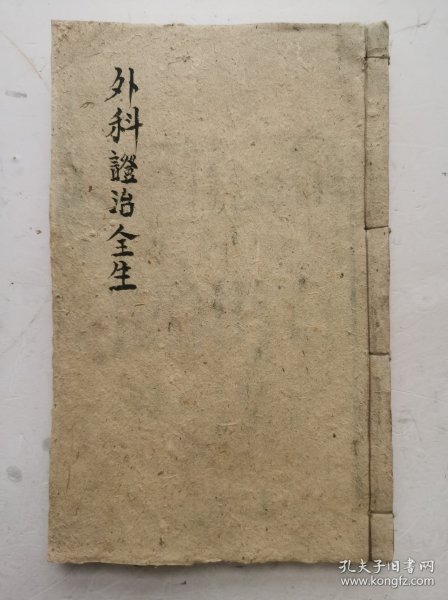 外科證治全生
孔夫子旧书网
www.kongfz.com